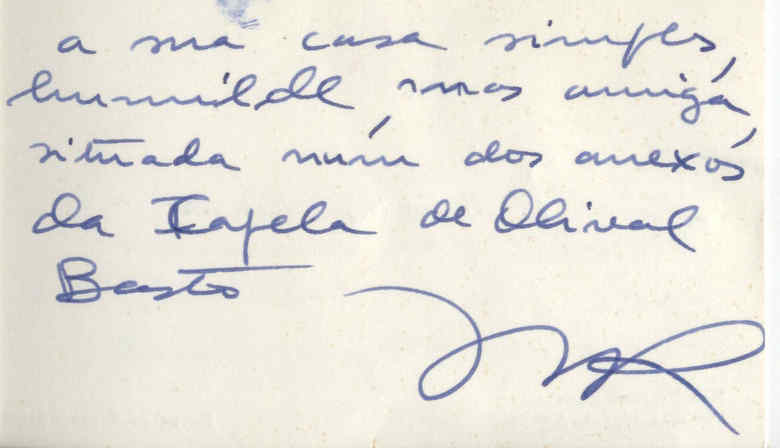 a sua casa simples,
humilde mas amiga,
situada num dos anexos
da Capela de Olival
Basto